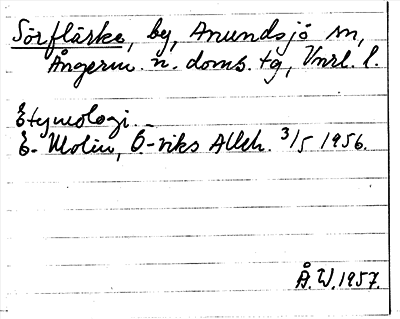 Sörflärke, by, Anundsjö sn,
Ångerm. n. doms. tg, Vnrl. l.
Etymologi. –
E. Molin, Ö-viks Alleh. 3/5 1956.
Å. W. 1957.